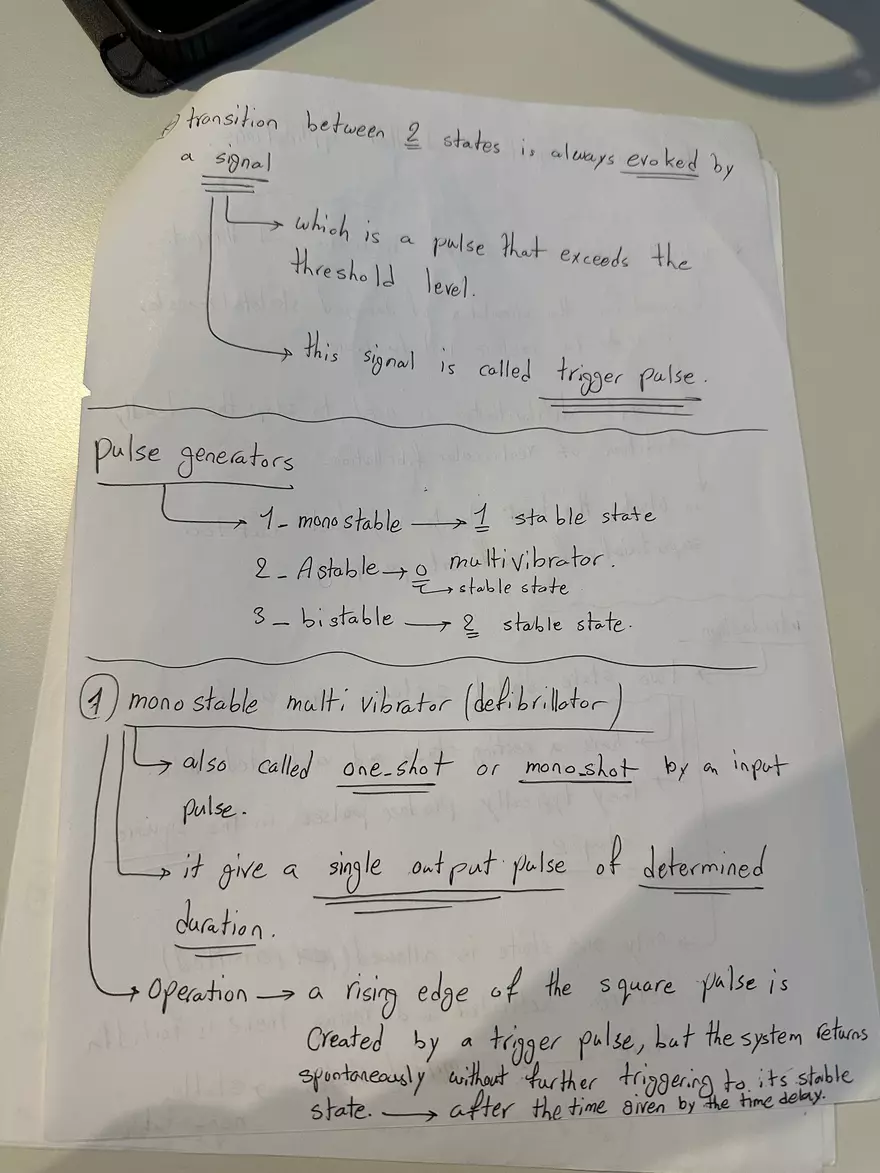 transition between 2 states is always evoked by
a signal
→ which is a pulse that exceeds the
threshold level.
→ this signal is called trigger pulse.
Pulse generators
→ 1_ monostable → 1 stable state
2_ Astable → 0 multivibrator.
→ stable state
3_ bistable → 2 stable state.
1 monostable multi vibrator (defibrillator)
→ also called one_shot or mono_shot by an input
pulse.
→ it give a single output pulse of determined
duration.
→ Operation → a rising edge of the square pulse is
Created by a trigger pulse, but the system returns
spontaneously without further triggering to its stable
state. → after the time given by the time delay.